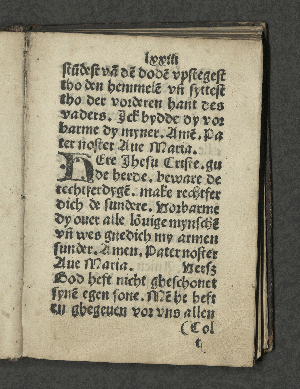 lxxiii
stūdest vā dē dodē vpstegest
tho den hemmelē vñ syttest
tho der vorderen hant des
vaders. Jck bydde dy vor
barme dy myner. Amē. Pa
ter noster Aue Maria.
HEre Jhesu Criste. gu
de herde. beware de
rechtferdygē. make rechtfer
dich de sundere. Vorbarme
dy ouer alle lōuige mynschē
vñ wes gnedich my armen
sunder. Amen. Pater noster
Aue Maria. Versz
God heft nicht gheschonet
synē egen sone. Mē he heft
en ghegeuen vor vns allen
(Col
t